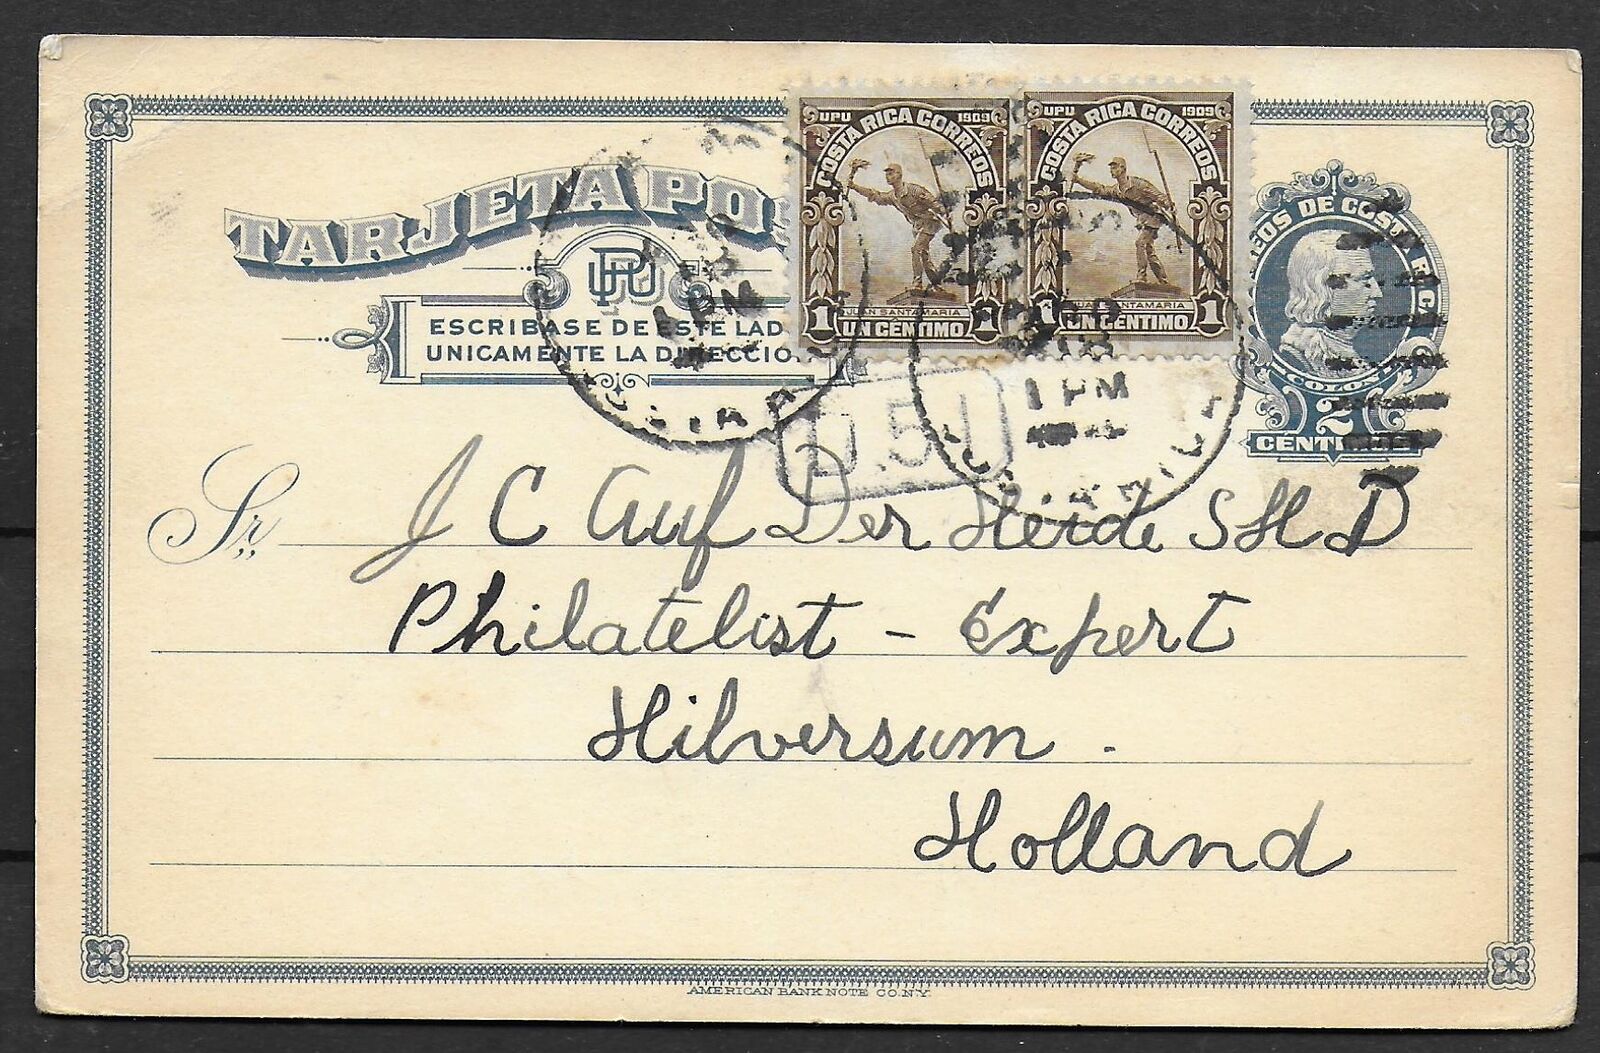 TARJETA POS
UPU
ESCRIBASE DE ESTE LAD
UNICAMENTE LA DIRECCION
UPU 1909
COSTA RICA CORREOS
JUAN SANTAMARIA
1 UN CÉNTIMO 1
UPU 1909
COSTA RICA CORREOS
JUAN SANTAMARIA
1 UN CENTIMO 1
EOS DE COSTA RICA
COLON
2
CÉNTIMOS
1 PM
1 PM
COSTA RICA
Sr.
J C Auf Der Heide S H D
Philatelist - Expert
Hilversum.
Holland
AMERICAN BANK NOTE CO. N.Y.